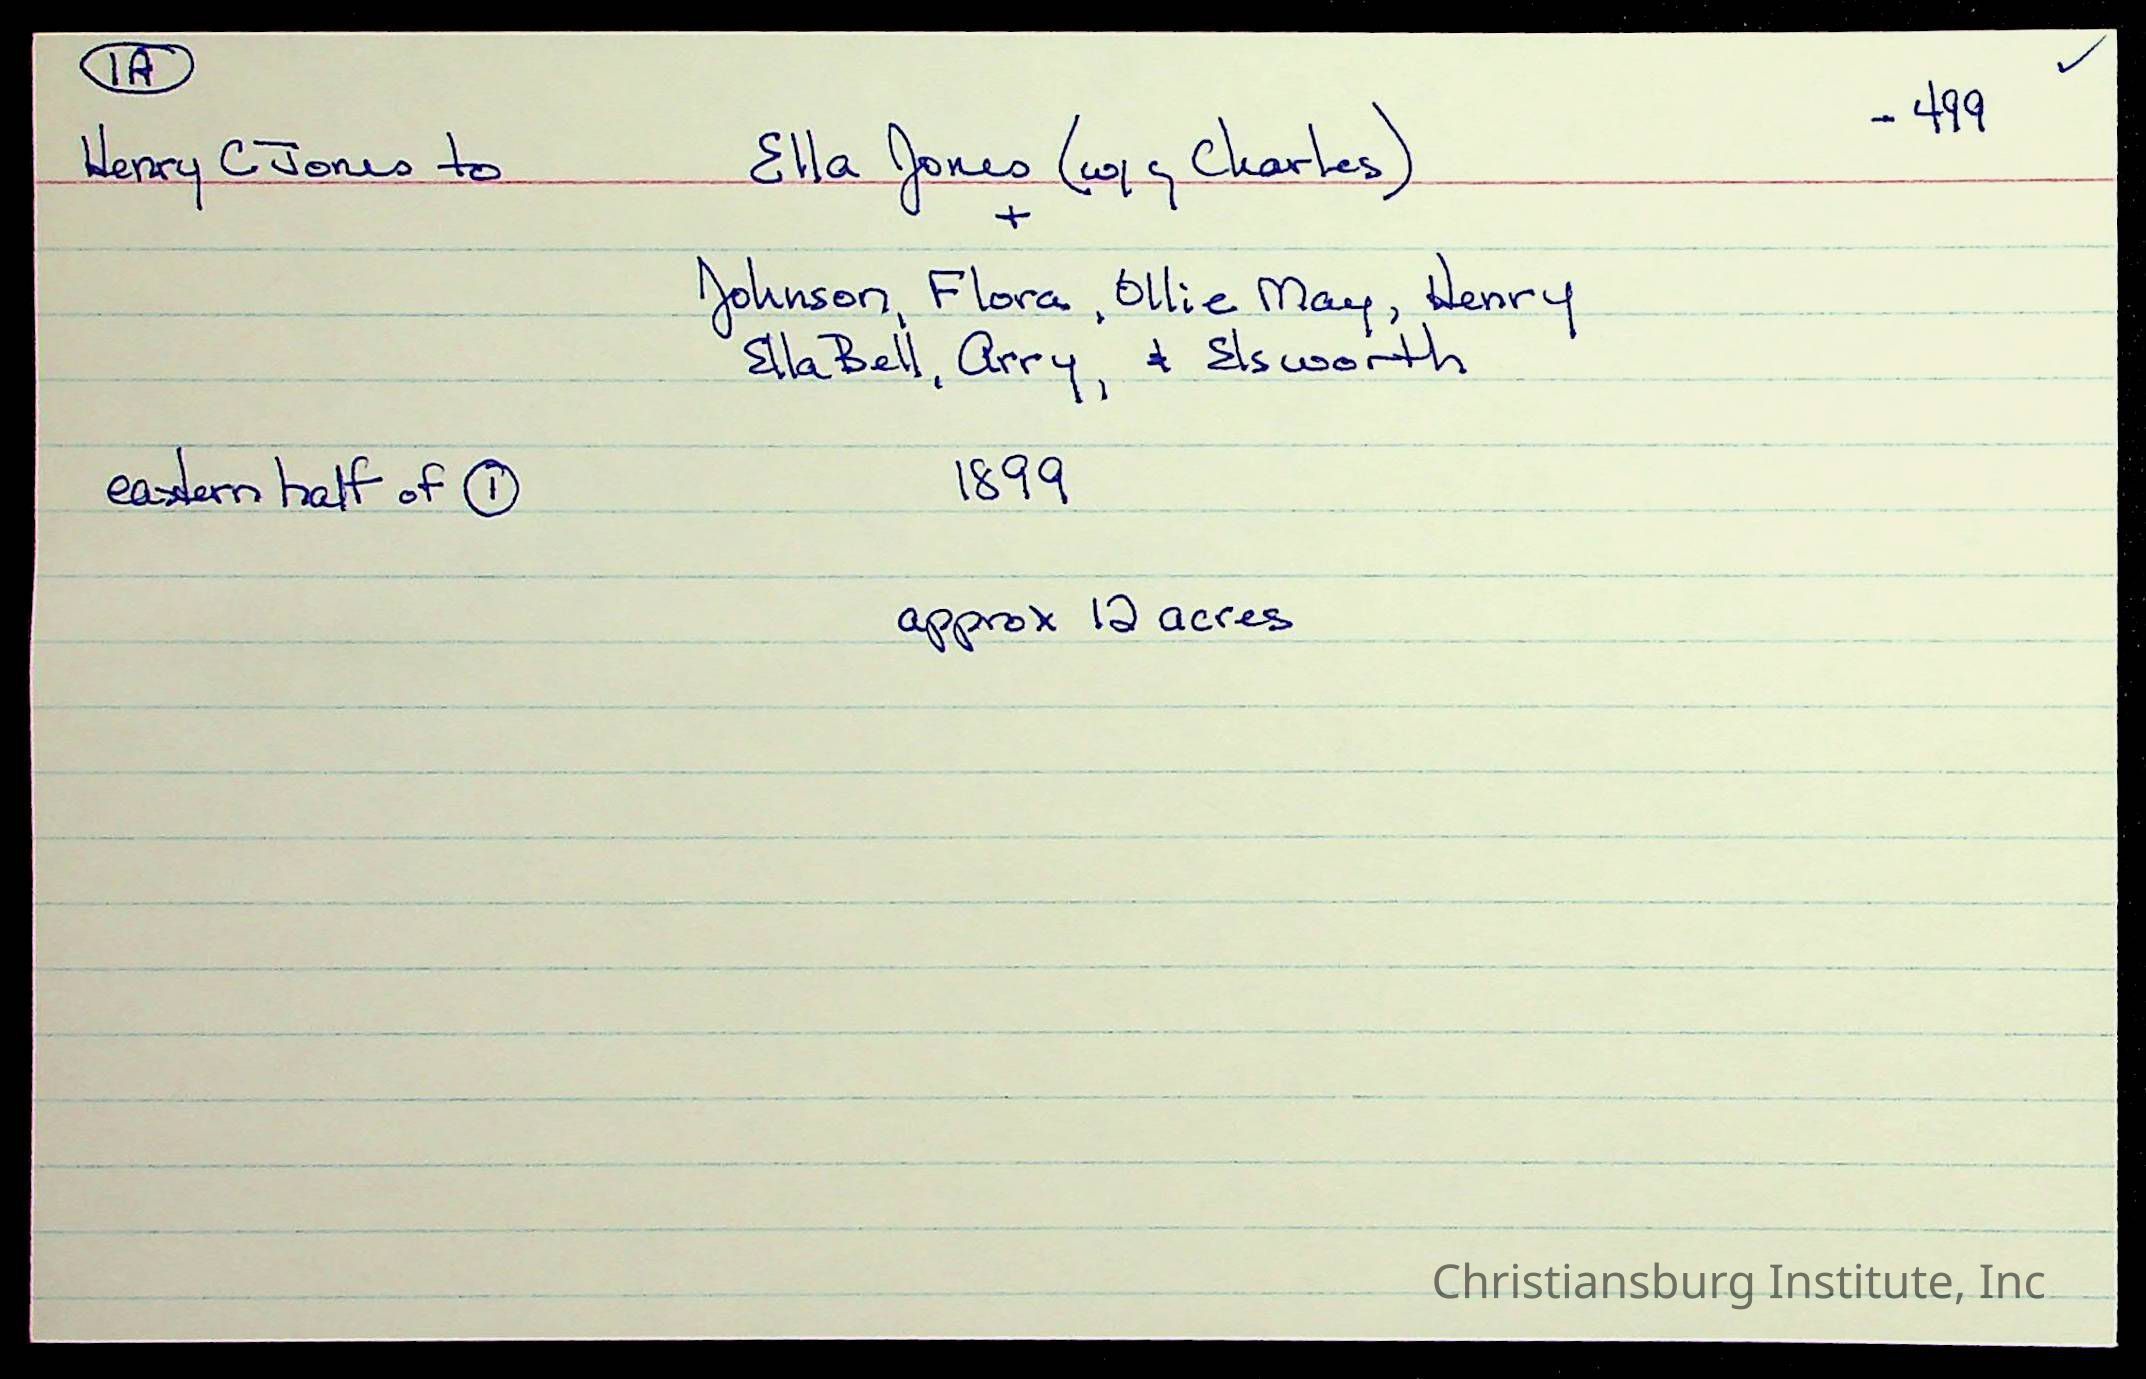 1A
- 499
Henry C Jones to Ella Jones (w/ Charles)
+
Johnson, Flora, Ollie May, Henry
Ella Bell, Arry, + Elsworth
eastern half of 1 1899
approx 12 acres
Christiansburg Institute, Inc